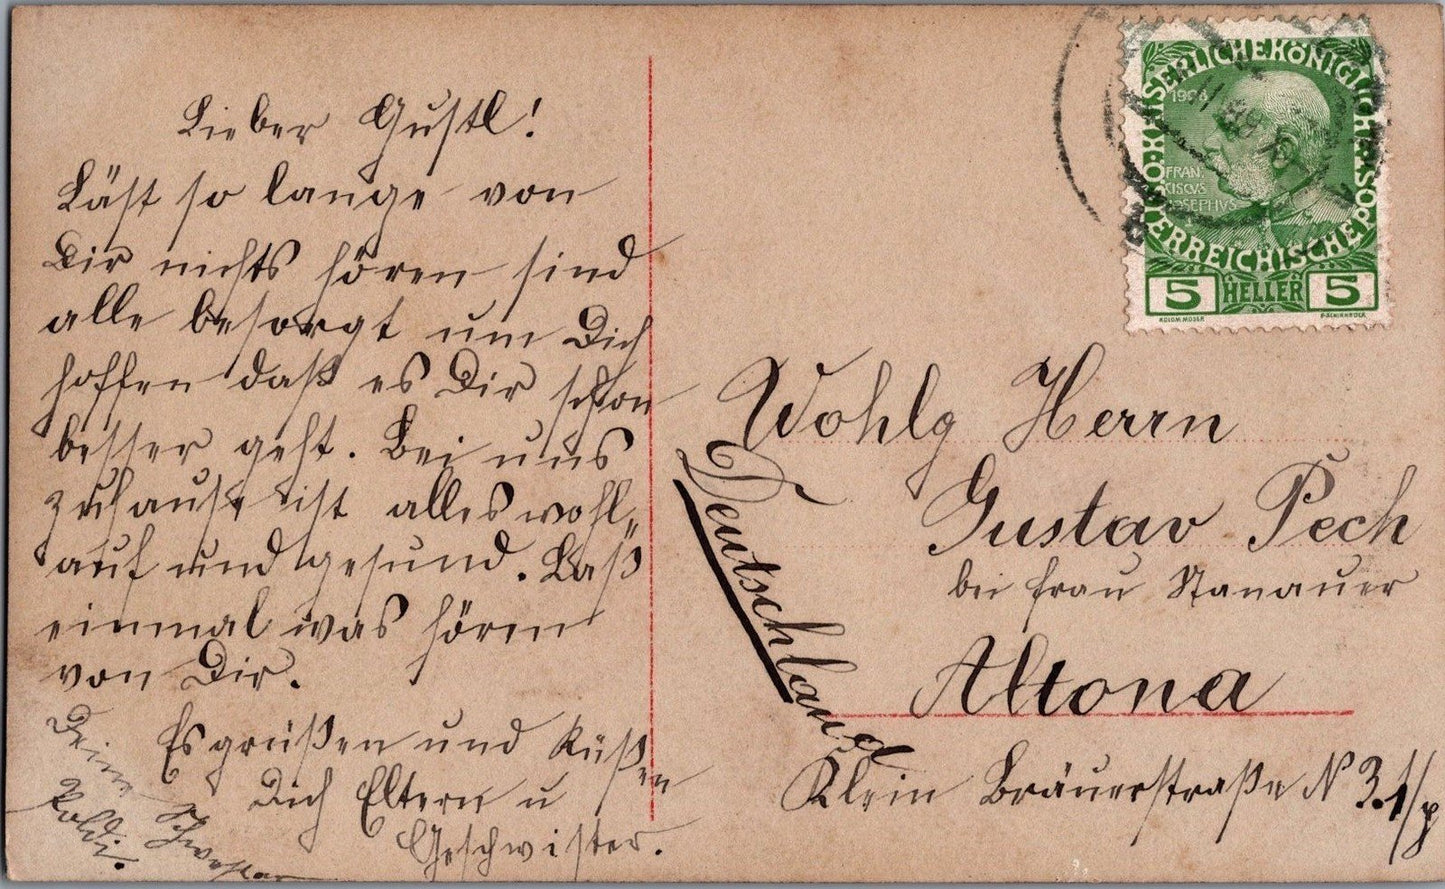 Lieber Gustl!
Läst so lange von
Dir nichts hören sind
alle besorgt um Dich
hoffen daß es Dir schon
besser geht. Bei uns
zuhause ist alles wohl„
auf und gesund. Laß
einmal was hören
von Dir.
Es grüßen und Küßen
Dich Eltern u
Geschwister.
Deine Schwester
Poldi.
K.K. ÖSTERREICHISCHE POST
KAISERLICHEKÖNIGLICHE
1908
FRAN
CISCVS
IOSEPHVS
5 HELLER 5
KOLOM. MOSER
F. SCHIRNBÖCK
Wohlg Herrn
Gustav Pech
bei Frau Stanauer
Altona
Klein Bräuerstraße N 3.1/p
Deutschland